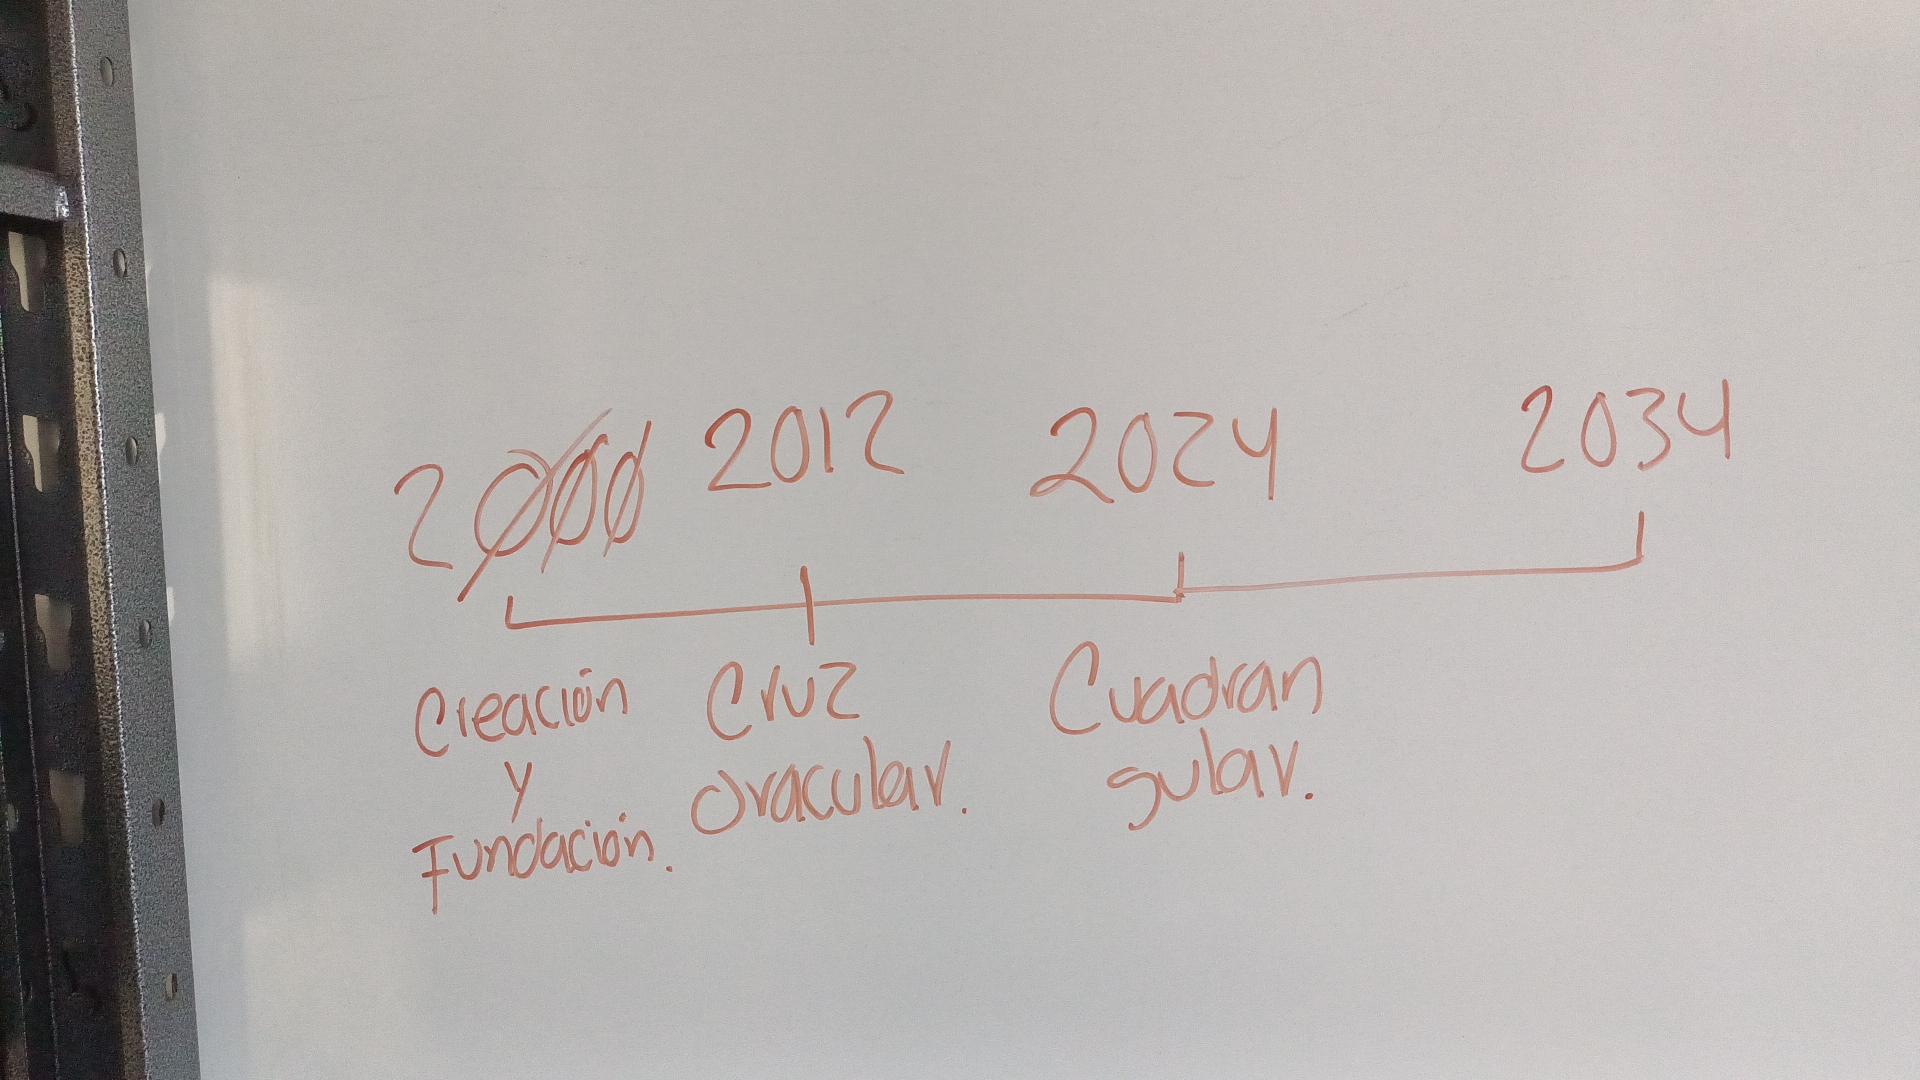 2000 2012 2024 2034
Creación Cruz Cuadran
y oracular. gular.
Fundación.